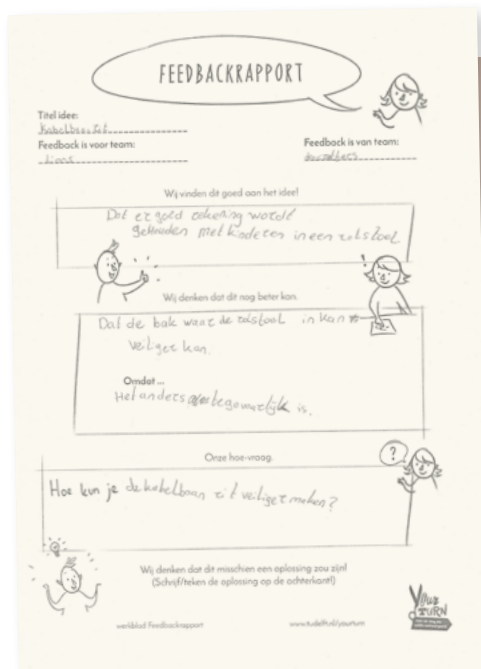 FEEDBACKRAPPORT
Titel idee:
Feedback is voor team:
Lions
Feedback is van team:
Wij vinden dit goed aan het idee!
Dat er goed rekening wordt
gehouden met kinderen in een rolstoel.
Wij denken dat dit nog beter kan.
Dat de bak waar de rolstoel in kan
veiliger kan.
Omdat ...
Het anders is.
Onze hoe-vraag.
?
Hoe kun je de kabelbaan rit veiliger maken?
Wij denken dat dit misschien een oplossing zou zijn!
(Schrijf/teken de oplossing op de achterkant!)
YOUR
TURN
werkblad Feedbackrapport
www.tudelft.nl/yourturn